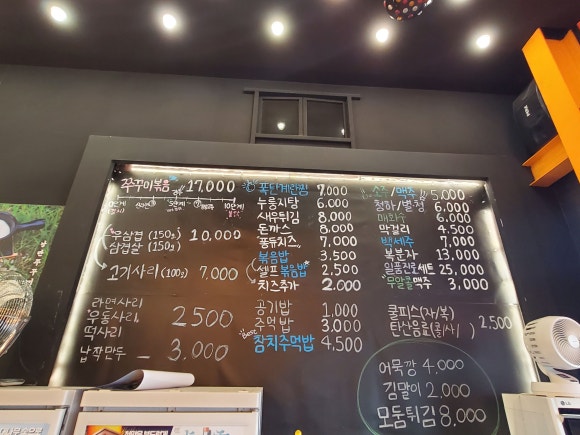 쭈꾸미볶음 17,000
10단계
우삼겹 (150g) 10,000
삼겹살 (150g)
고기사리 (100g) 7,000
라면사리
우동사리 2500
떡사리
납작만두 - 3.000
폭탄계란찜 7,000
누룽지탕 6,000
새우튀김 8,000
돈까스 8,000
퐁듀치즈 7,000
볶음밥 3,500
셀프 볶음밥 2,500
치즈추가 2.000
공기밥 1,000
주먹밥 3,000
Best 참치주먹밥 4,500
소주/맥주 5,000
청하/별청 6,000
매화수 6,000
막걸리 4,500
백세주 7,000
복분자 13,000
일품진로세트 25,000
무알콜맥주 3,000
쿨피스(자/복)
탄산음료(콜/사) 2,500
어묵깡 4.000
김말이 2.000
모둠튀김 8,000
LG